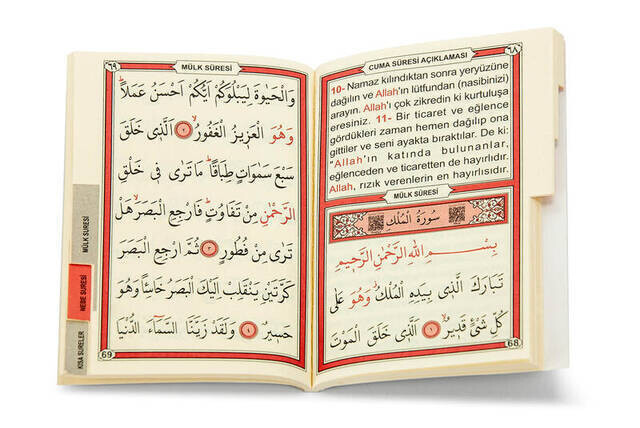 CUMA SÛRESİ AÇIKLAMASI ٦٨
10- Namaz kılındıktan sonra yeryüzüne
dağılın ve Allah'ın lütfundan (nasibinizi)
arayın. Allah'ı çok zikredin ki kurtuluşa
eresiniz. 11- Bir ticaret ve eğlence
gördükleri zaman hemen dağılıp ona
gittiler ve seni ayakta bıraktılar. De ki:
"Allah'ın katında bulunanlar,
eğlenceden ve ticaretten de hayırlıdır.
Allah, rızık verenlerin en hayırlısıdır.
MÜLK SÛRESİ
سُورَةُ الْمُلْكِ
بِسْمِ اللهِ الرَّحْمٰنِ الرَّحِيمِ
تَبَارَكَ الَّذٖي بِيَدِهِ الْمُلْكُ وَهُوَ عَلٰى
كُلِّ شَيْءٍ قَدٖيرٌ ١ اَلَّذٖي خَلَقَ الْمَوْتَ
68
٦٩ MÜLK SÛRESİ
وَالْحَيٰوةَ لِيَبْلُوَكُمْ اَيُّكُمْ اَحْسَنُ عَمَلًا
وَهُوَ الْعَزٖيزُ الْغَفُورُ ٢ اَلَّذٖي خَلَقَ
سَبْعَ سَمٰوَاتٍ طِبَاقًا مَا تَرٰى فٖي خَلْقِ
الرَّحْمٰنِ مِنْ تَفَاوُتٍ فَارْجِعِ الْبَصَرَ هَلْ
تَرٰى مِنْ فُطُورٍ ٣ ثُمَّ ارْجِعِ الْبَصَرَ
كَرَّتَيْنِ يَنْقَلِبْ اِلَيْكَ الْبَصَرُ خَاسِئًا وَهُوَ
حَسٖيرٌ ٤ وَلَقَدْ زَيَّنَّا السَّمَٓاءَ الدُّنْيَا
69
MÜLK SURESİ
NEBE SURESİ
KISA SURELER